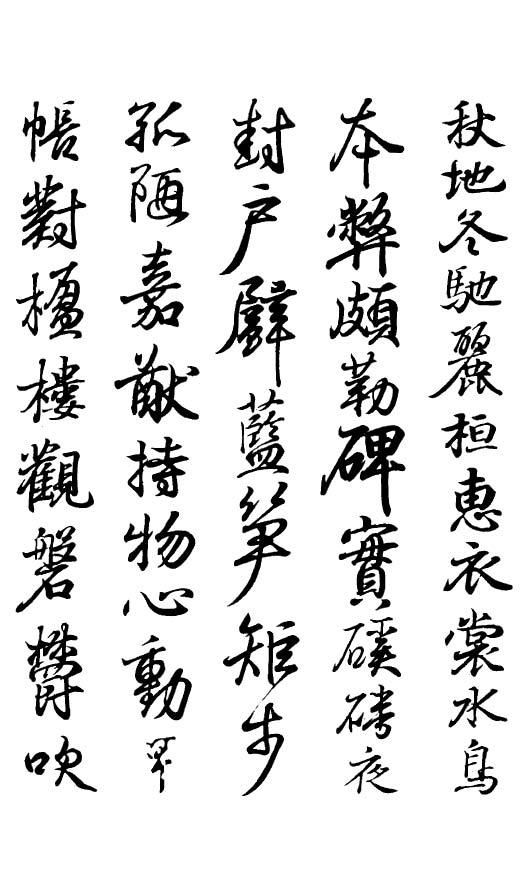 秋地冬馳麗桓惠衣裳水鳥
本弊頗勒碑實磎夜
封戶藍笋矩步
孤陋嘉猷持物心動
帳對楹樓觀磐鬱吹